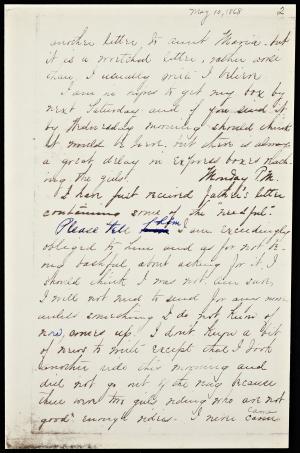 May 10, 1868
2
another letter, to aunt Maria, but
it is a wretched letter, rather worse
than I usually write I believe
I am in hopes to get my box by
next Saturday and if you send it
by Wednesday morning I should think
it would be here, but there is always
a great delay in express boxes reach-
ing the girls. Monday P.M.
I have just received father's letter
containing some of the "needful".
Please tell him I am exceedingly
obliged to him and as for not be-
ing bashful about asking for it, I
should think I was not. Am sure
I will not need to send for any more
unless something I do not know of
now, comes up. I don't know a bit
of news to write except that I took
another ride this morning and
did not go out of the way because
there were two girls riding who are not
good enough riders. I never came
came